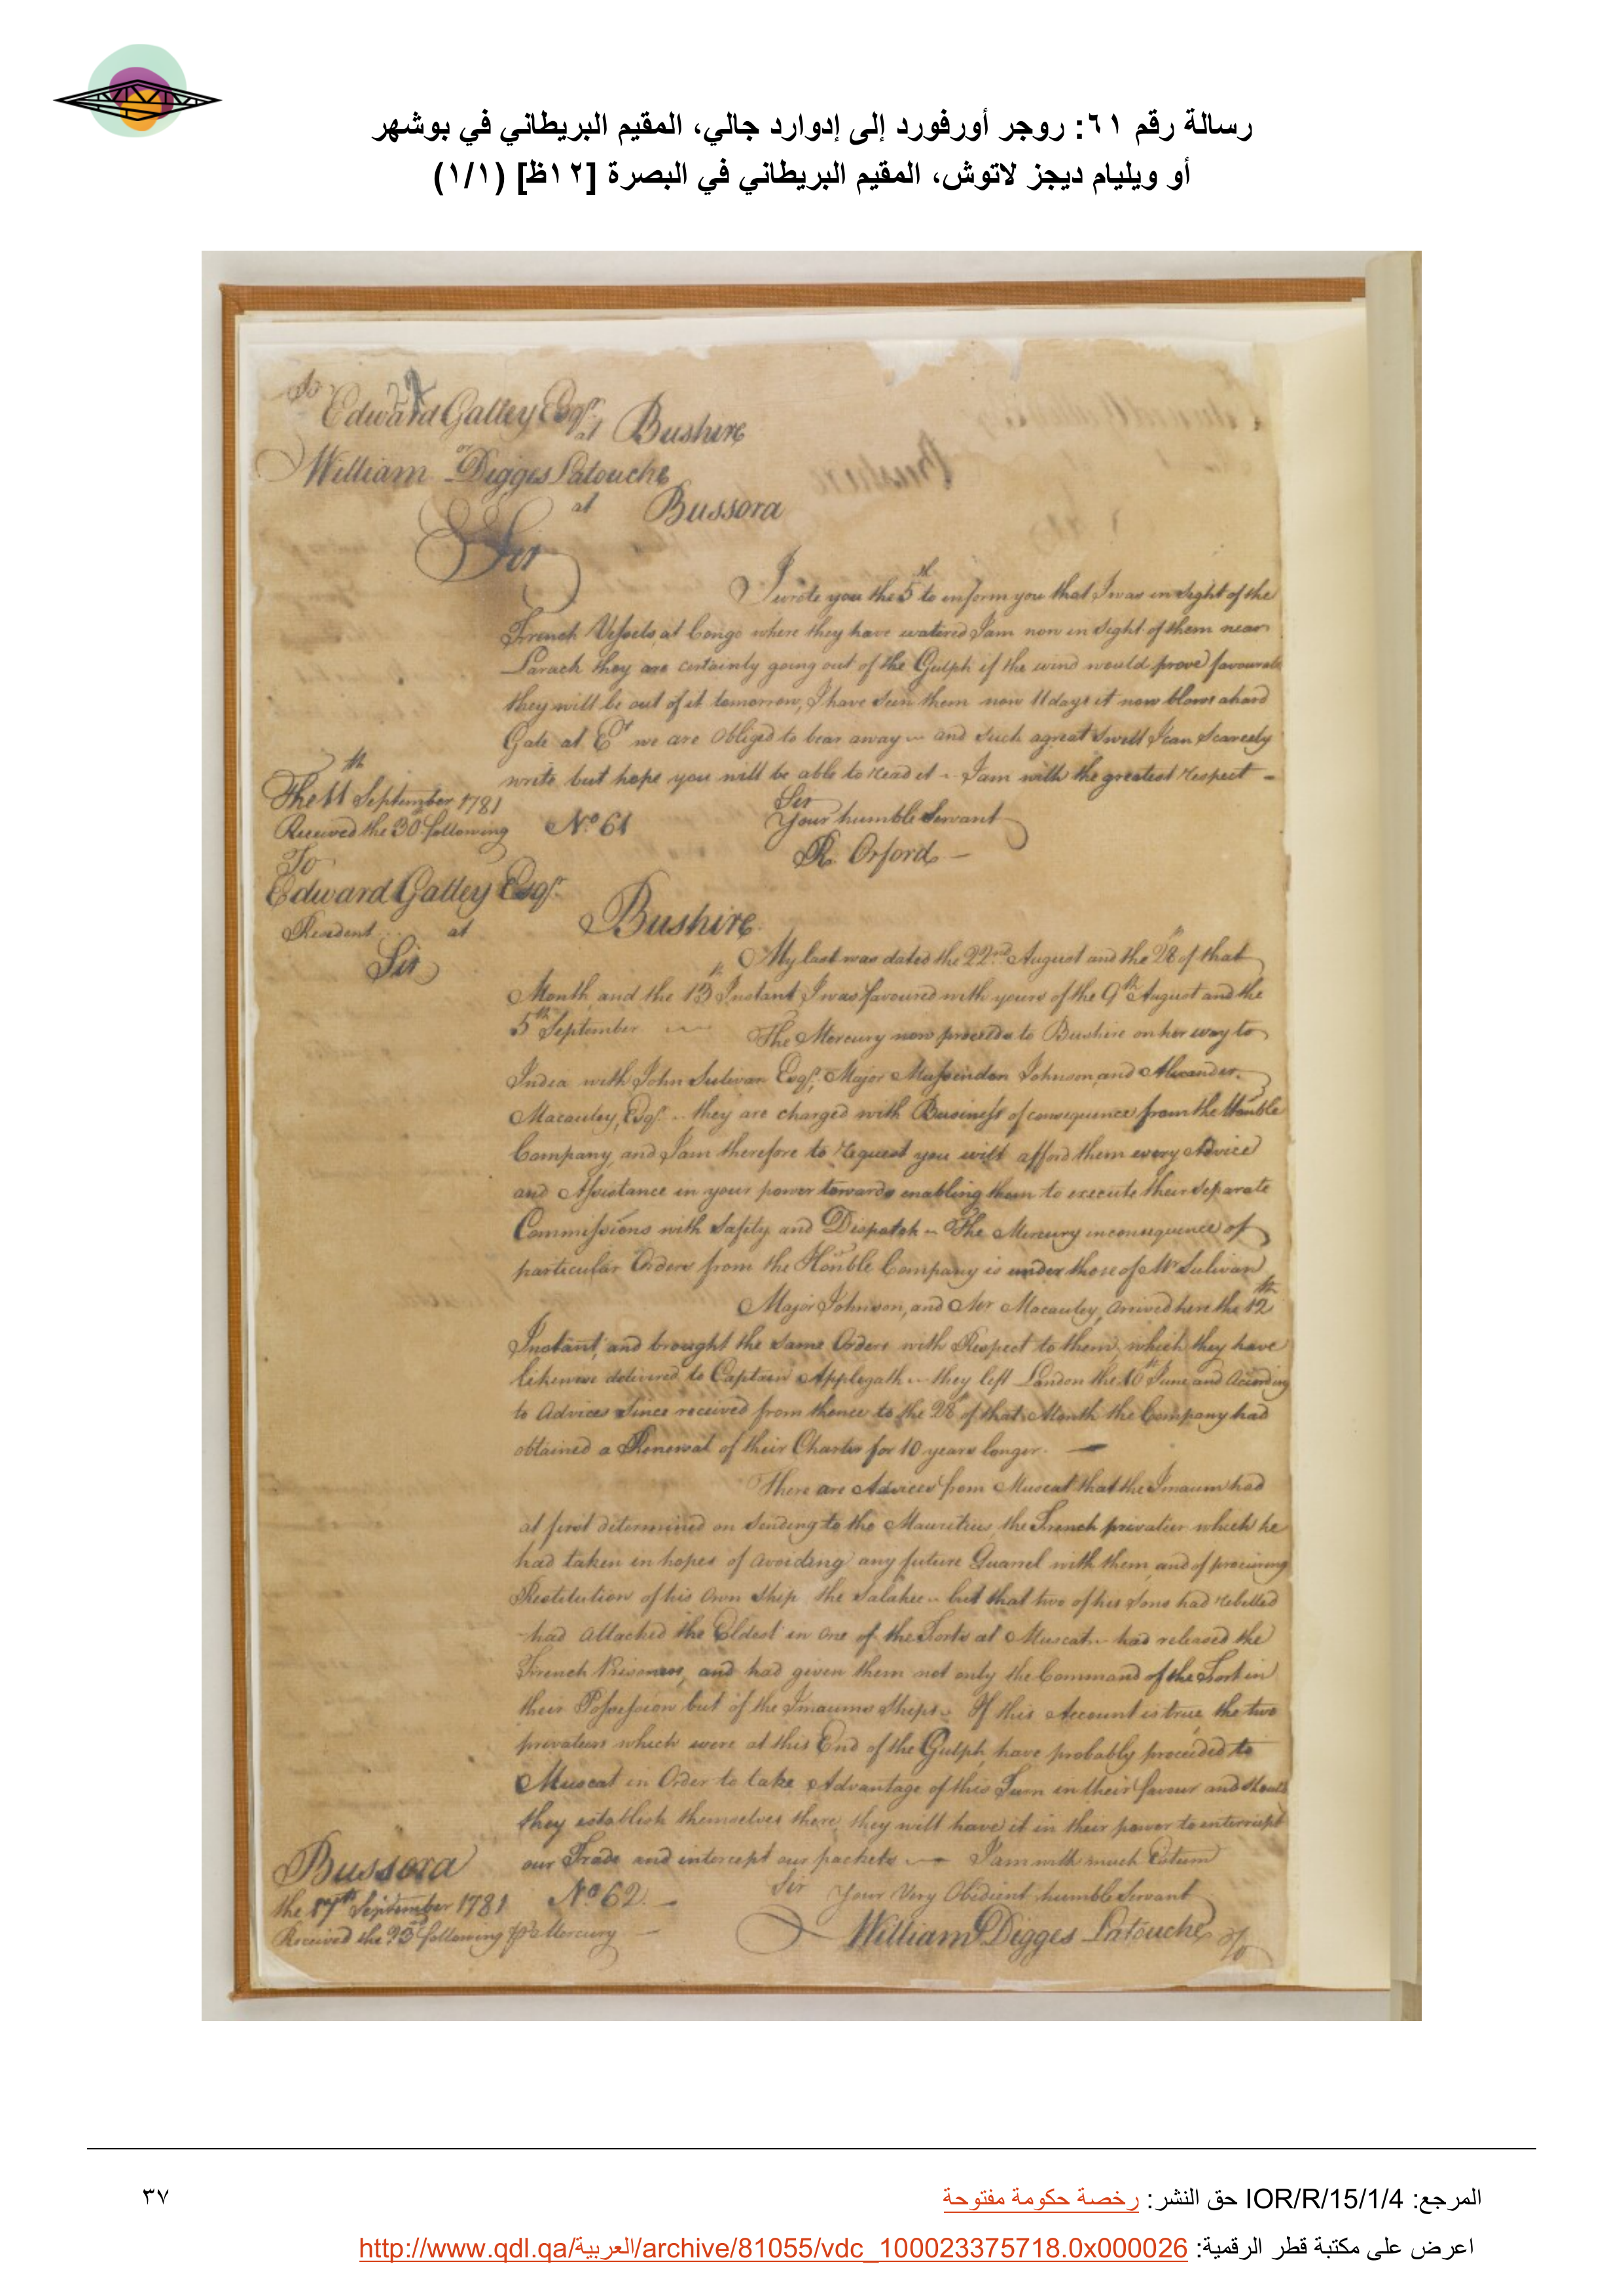 رسالة رقم ٦١: روجر أورفورد إلى إدوارد جالي، المقيم البريطاني في بوشهر
أو ويليام ديجز لاتوش، المقيم البريطاني في البصرة [١٢ظ] (١/١)
To
Edward Galley Esqr.
at Bushire
or
William Digges Latouche
at Bussora
Sir
I wrote you the 5th to inform you that I was in sight of the
French Vessels at Congo where they have watered I am now in sight of them near
Larack they are certainly going out of the Gulph if the wind would prove favourable
they will be out of it tomorrow, I have seen them now 11 days it now blows a hard
Gale at Et we are obliged to bear away and such a great swell I can scarcely
write but hope you will be able to read it. I am with the greatest respect
Sir
The 11th September 1781
Your humble Servant
Received the 30 following No. 61
R. Orford
To
Edward Galley Esqr.
Resident at Bushire.
Sir
My last was dated the 22nd August and the 28th of that
Month, and the 13th Instant I was favoured with yours of the 9th August and the
5th September The Mercury now proceeds to Bushire on her way to
India with John Sulivan Esqr. Major Johnson, and Alexander
Macauley, Esqr. they are charged with Business of consequence from the Honble
Company, and I am therefore to request you will afford them every Advice
and Assistance in your power towards enabling them to execute their separate
Commissions with Safety and Dispatch The Mercury in consequence of
particular Orders from the Honble Company is under those of Mr Sulivan
Major Johnson, and Mr Macauley, arrived here the 12th
Instant, and brought the same Orders with Respect to them, which they have
likewise delivered to Captain Applegath they left London the 16th June and according
to Advices since received from thence to the 28th of that Month the Company had
obtained a Renewal of their Charter for 10 years longer.
There are Advices from Muscat that the Imaum had
at first determined on sending to the Mauritius, the French privatier which he
had taken in hopes of avoiding any future Quarrel with them, and of procuring
Restitution of his own Ship the Salahee but that two of his Sons had rebelled
had attacked the Eldest in one of the Forts at Muscat had released the
French Prisoners, and had given them not only the Command of the Fort in
their Possession but of the Imaums Ships If this Account is true, the two
privatiers which were at this End of the Gulph, have probably proceeded to
Muscat in Order to take Advantage of this Turn in their favour and should
they establish themselves there, they will have it in their power to interrupt
our Trade and intercept our packets I am with much Esteem
Bussora
Sir Your Very Obedient humble Servant
the 17th September 1781 No. 62.
William Digges Latouche
Received the 25th following pr. Mercury
المرجع: IOR/R/15/1/4 حق النشر: رخصة حكومة مفتوحة
٣٧
اعرض على مكتبة قطر الرقمية: http://www.qdl.qa/العربية/archive/81055/vdc_100023375718.0x000026